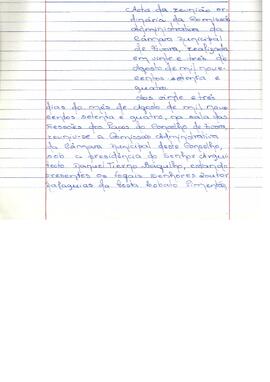 Acta da reunião or-
dinária da Comissão
Administrativa da
Câmara Municipal
de Évora, realizada
em vinte e três de
Agosto de mil nove-
centos setenta e
quatro
Aos vinte e três
dias do mês de Agosto de mil nove
centos setenta e quatro, na sala das
Sessões dos Paços do Concelho de Évora,
reuniu-se a Comissão Administrativa
da Câmara Municipal deste Concelho,
sob a presidência do Senhor Arqui
tecto Manuel Tierno Bagulho, estando
presentes os Vogais Senhores Doutor
da Costa Lobato Pimentão,